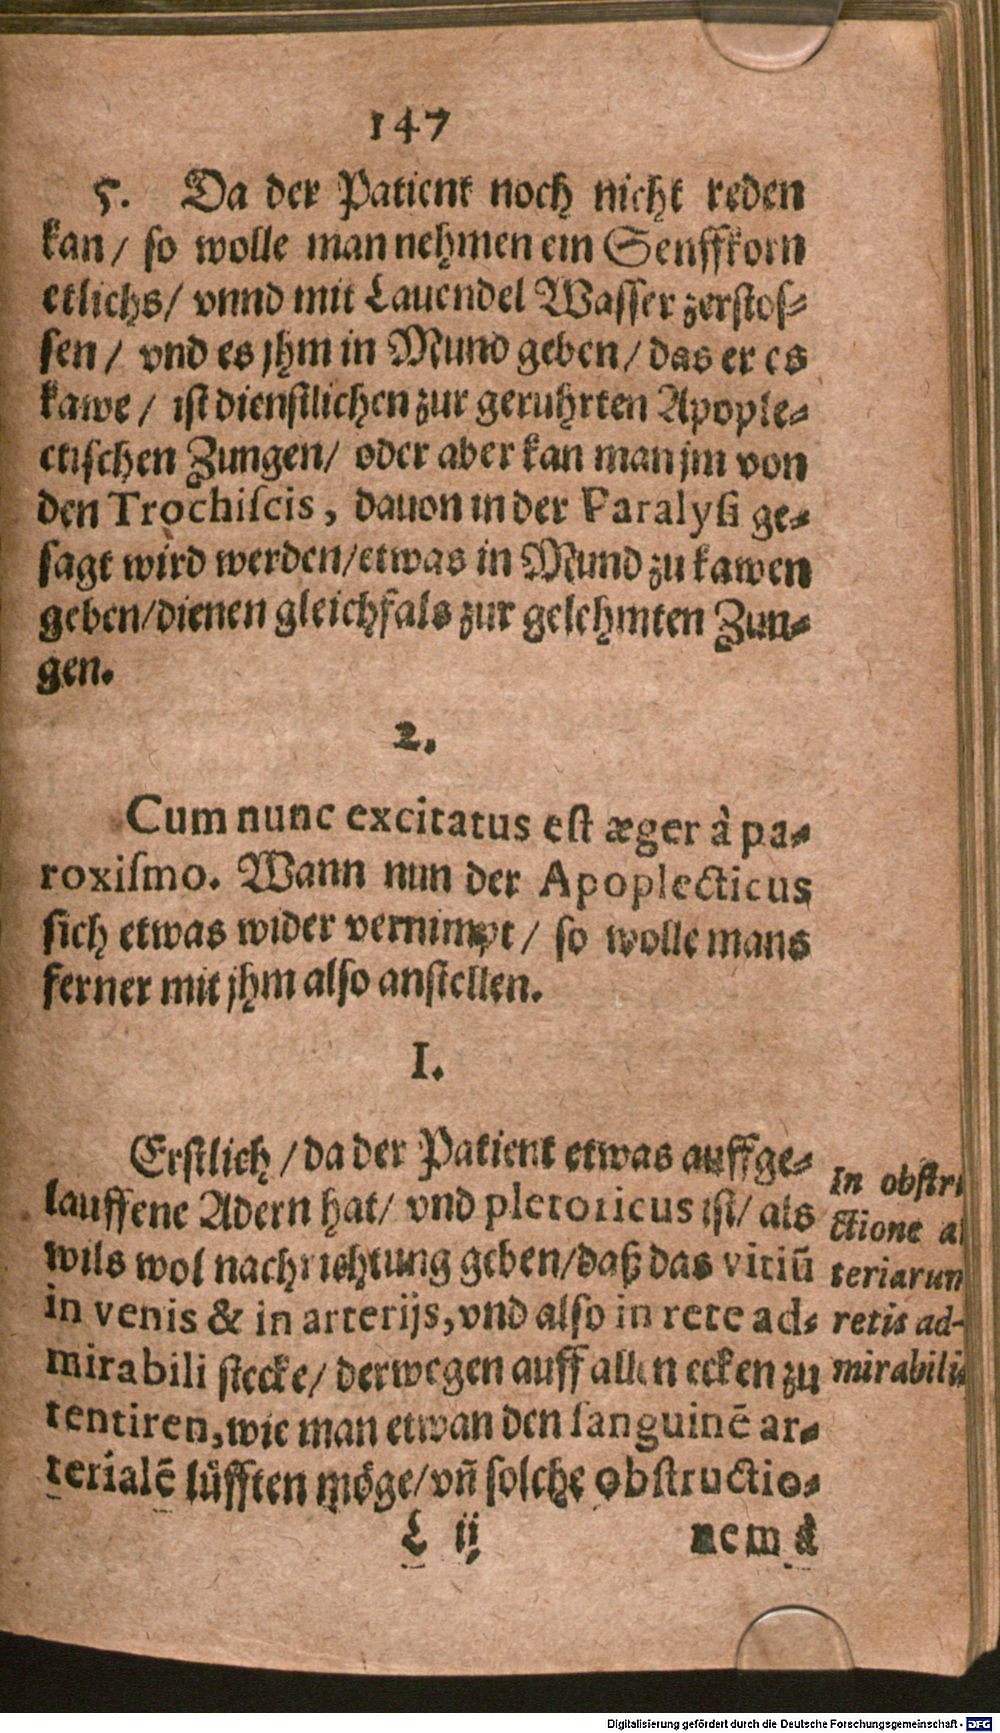 147
5. Da der Patient noch nicht reden
kan / so wolle man nehmen ein Senffkorn
etlichs / vnnd mit Lauendel Wasser zerstos-
sen / vnd es jhm in Mund geben / das er es
kawe / ist dienstlichen zur geruhrten Apople-
ctischen Zungen / oder aber kan man jm von
den Trochiſcis, dauon in der Paralyſi ge-
sagt wird werden / etwas in Mund zu kawen
geben / dienen gleichfals zur gelehmten Zun-
gen.
2.
Cum nunc excitatus eſt æger à pa-
roxiſmo. Wann nun der Apoplecticus
sich etwas wider vernimpt / so wolle mans
ferner mit jhm also anstellen.
I.
Erstlich / da der Patient etwas auffge-
lauffene Adern hat / vnd pletoricus ist / als
wils wol nachrichtung geben / daß das vitiũ
in venis & in arterijs, vnd also in rete ad-
mirabili stecke / derwegen auff allen ecken zu
tentiren, wie man etwan den ſanguinẽ ar-
terialẽ lüfften möge / vñ solche obstructio-
L ij nem à
In obſtru
ctione a
teriarum
retis ad-
mirabilis
Digitalisierung gefördert durch die Deutsche Forschungsgemeinschaft - DFG